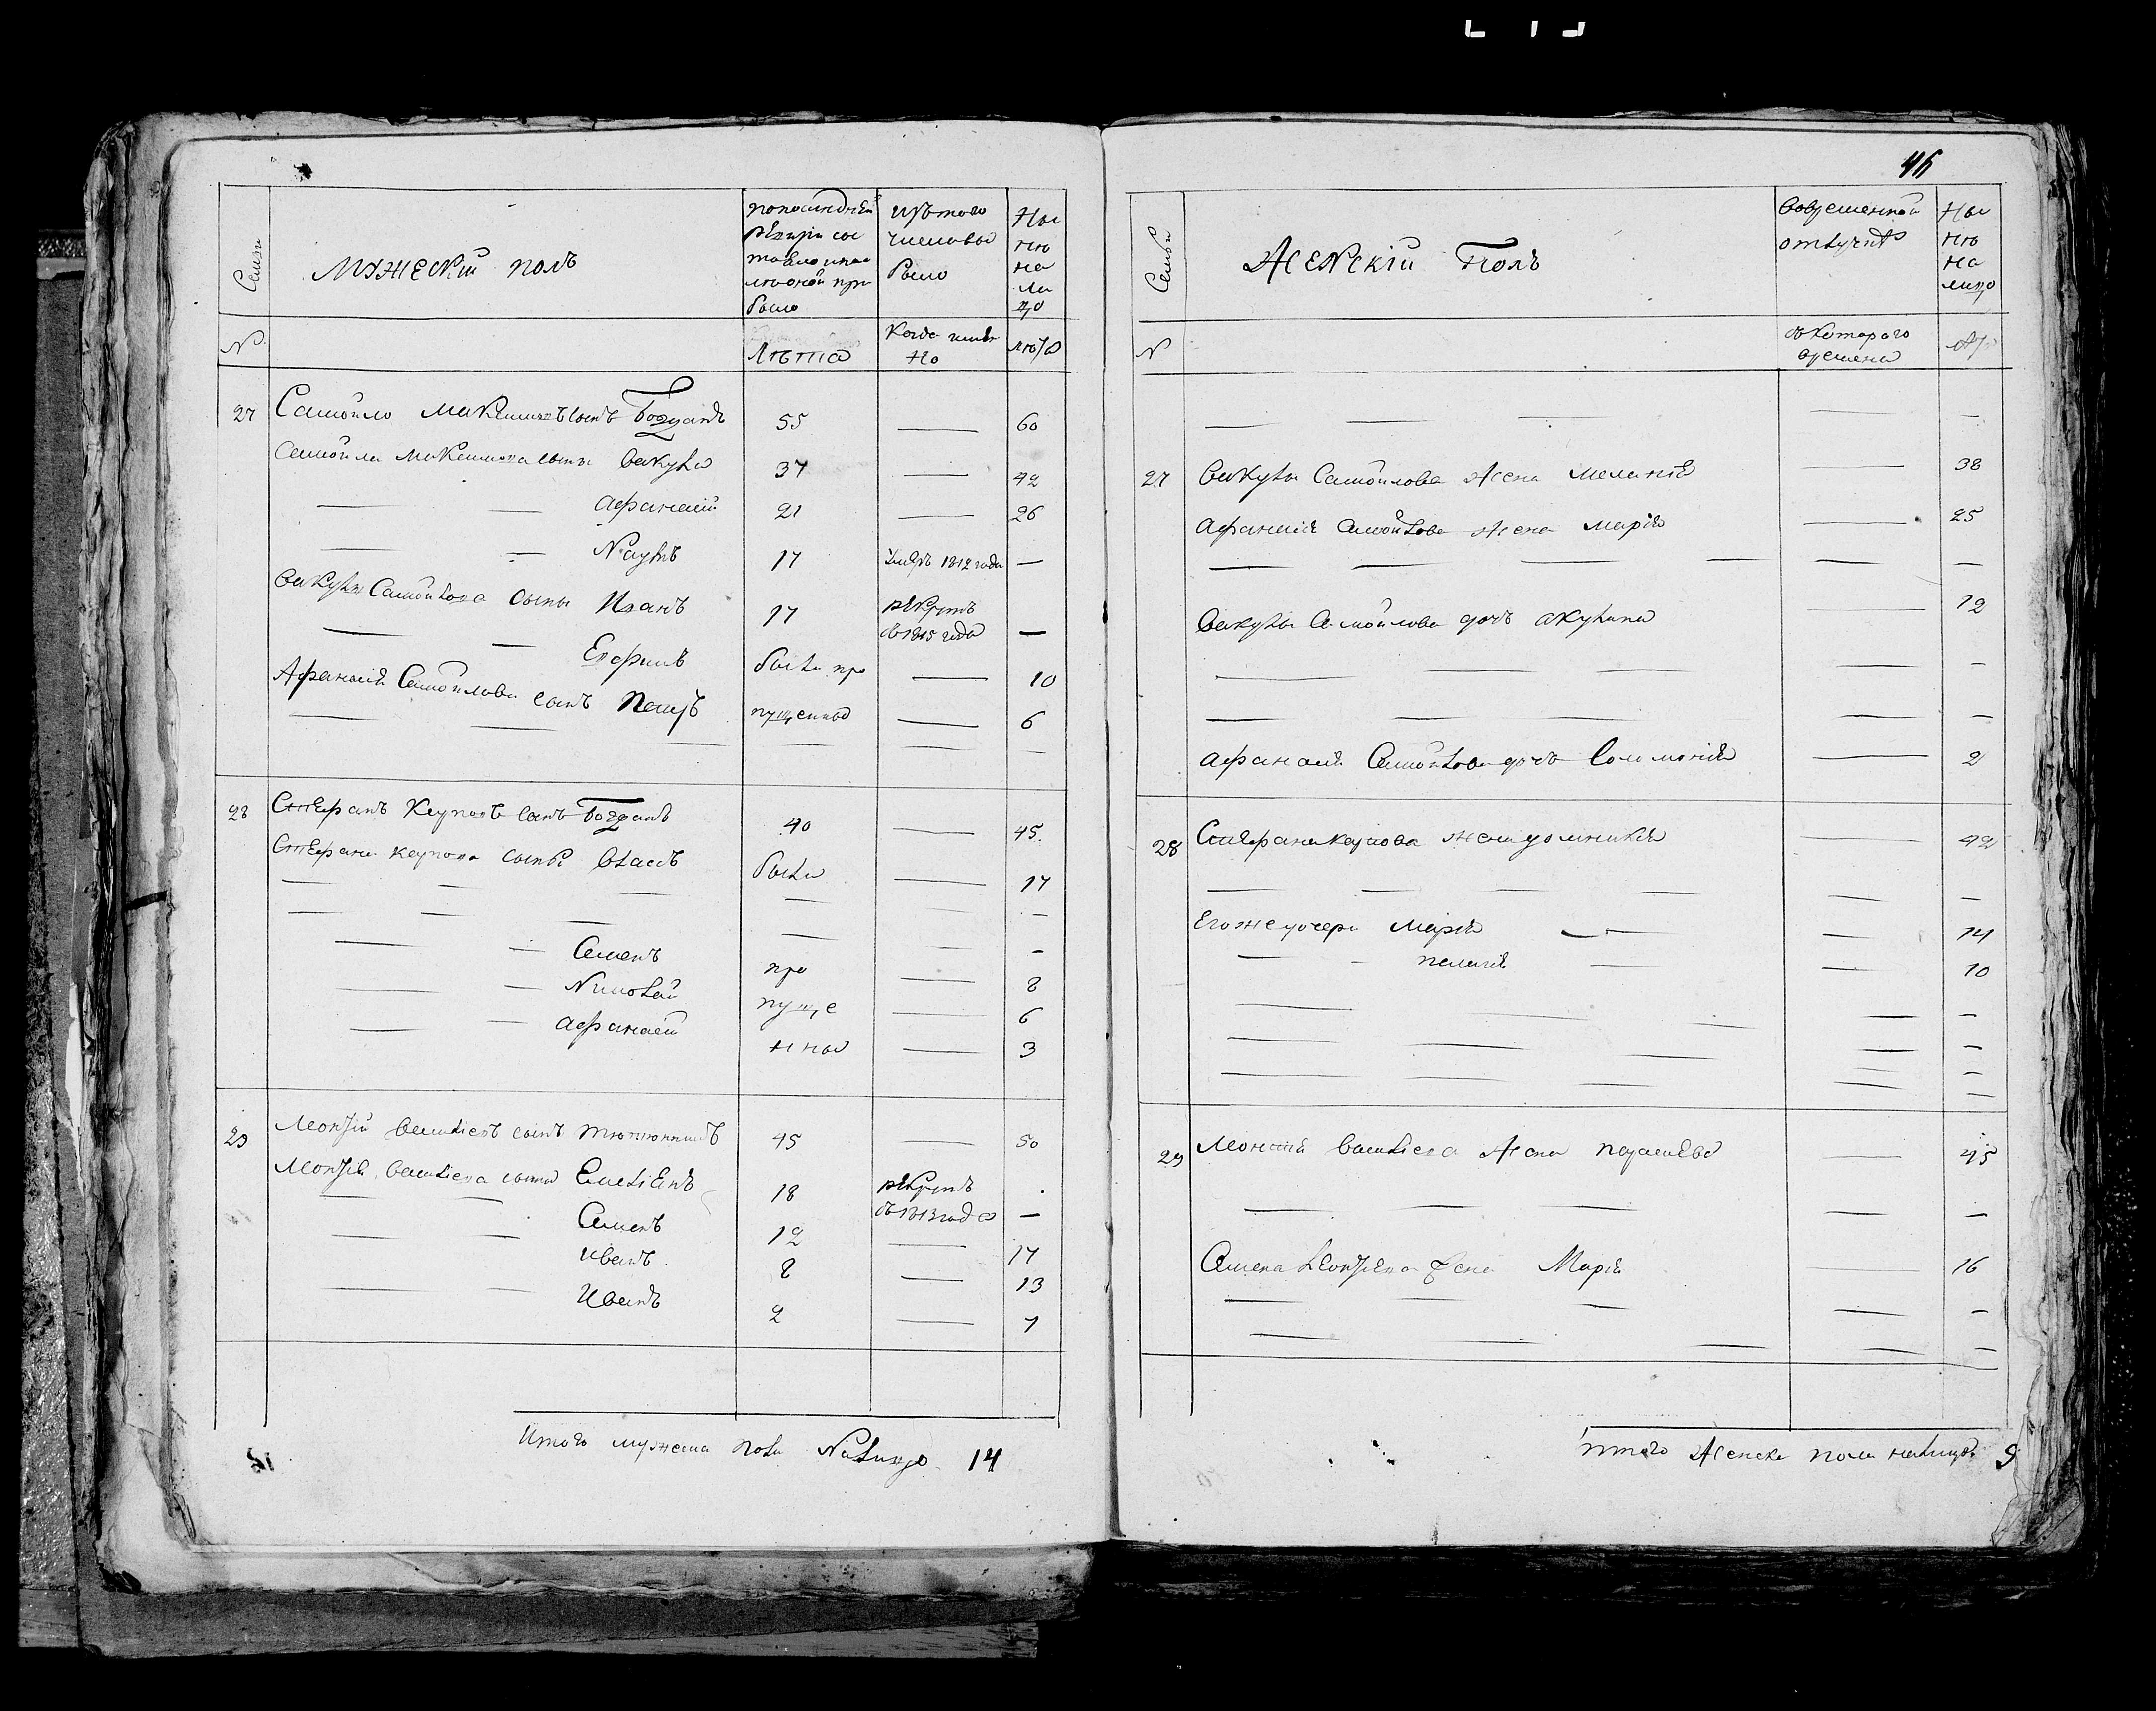 Семьи
МУЖЕСКІЙ ПОЛЪ
по последней
ревизіи сос
тояло и по
оной при
было
изъ того
числа вы
было
Ны
не
на
ли
цо
№
Лѣта
Когда имян
но
лѣта
27 Самойло Максимовъ сынъ Богданъ 55 — 60
Самойла Максимова сыны Вакула 37 — 42
— — Афанасий 21 — 26
— — Наумъ 17 умеръ 1812 года —
Вакулы Самойлова сыны Иванъ 17 рекрутъ
въ 1815 года —
— — Ефимъ были про — 10
Афанасия Самойлова сынъ Петръ пущенны — 6
28 Стефанъ Карповъ сынъ Богданъ 40 — 45.
Стефана Карпова сыны Власъ были — 17
— — Семенъ про — 8
— — Николай пуще — 6
— — Афанасий нны — 3
29 Леонтий Васильевъ сынъ 45 — 50
Леонтия Васильева сыны Емельянъ 18 рекрутъ
въ 1813 года —
— — Семенъ 12 — 17
— — Иванъ 8 — 13
— — Иванъ 2 — 7
Итого мужеска пола Налицо 14
46
Семьи
ЖЕНСКІЙ ПОЛЪ
Во временной
отлучке
Ны
не
на
лицо
№
съ котораго
времени
лѣ
27 Вакулы Самойлова жена Меланія — 38
Афанасия Самойлова жена Марія — 25
Вакулы Самойлова дочь Акулина — 12
Афанасия Самойлова дочь Соломонія — 2
28 Стефана Карпова жена Домникія — 42
Его же дочери Марія — 14
— — Пелагія — 10
29 Леонтия Васильева жена Парасковья — 45
Семена Леонтиева жена Марія — 16
Итого женска пола налицо 9